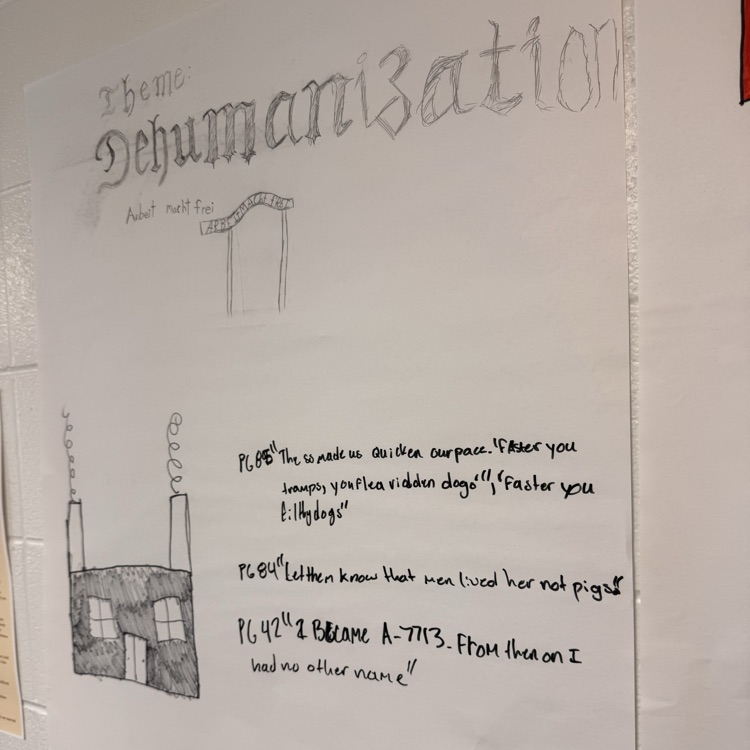 Theme:
Dehumanization
Arbeit macht frei
ARBEIT MACHT FREI
PG 85 "The SS made us Quicken our pace. "FAster you
tramps, you flea ridden dogs"", "Faster you
filthy dogs"
PG 84 "Let them know that men lived her not pigs"
PG 42 "I BECAME A-7713. From then on I
had no other name"